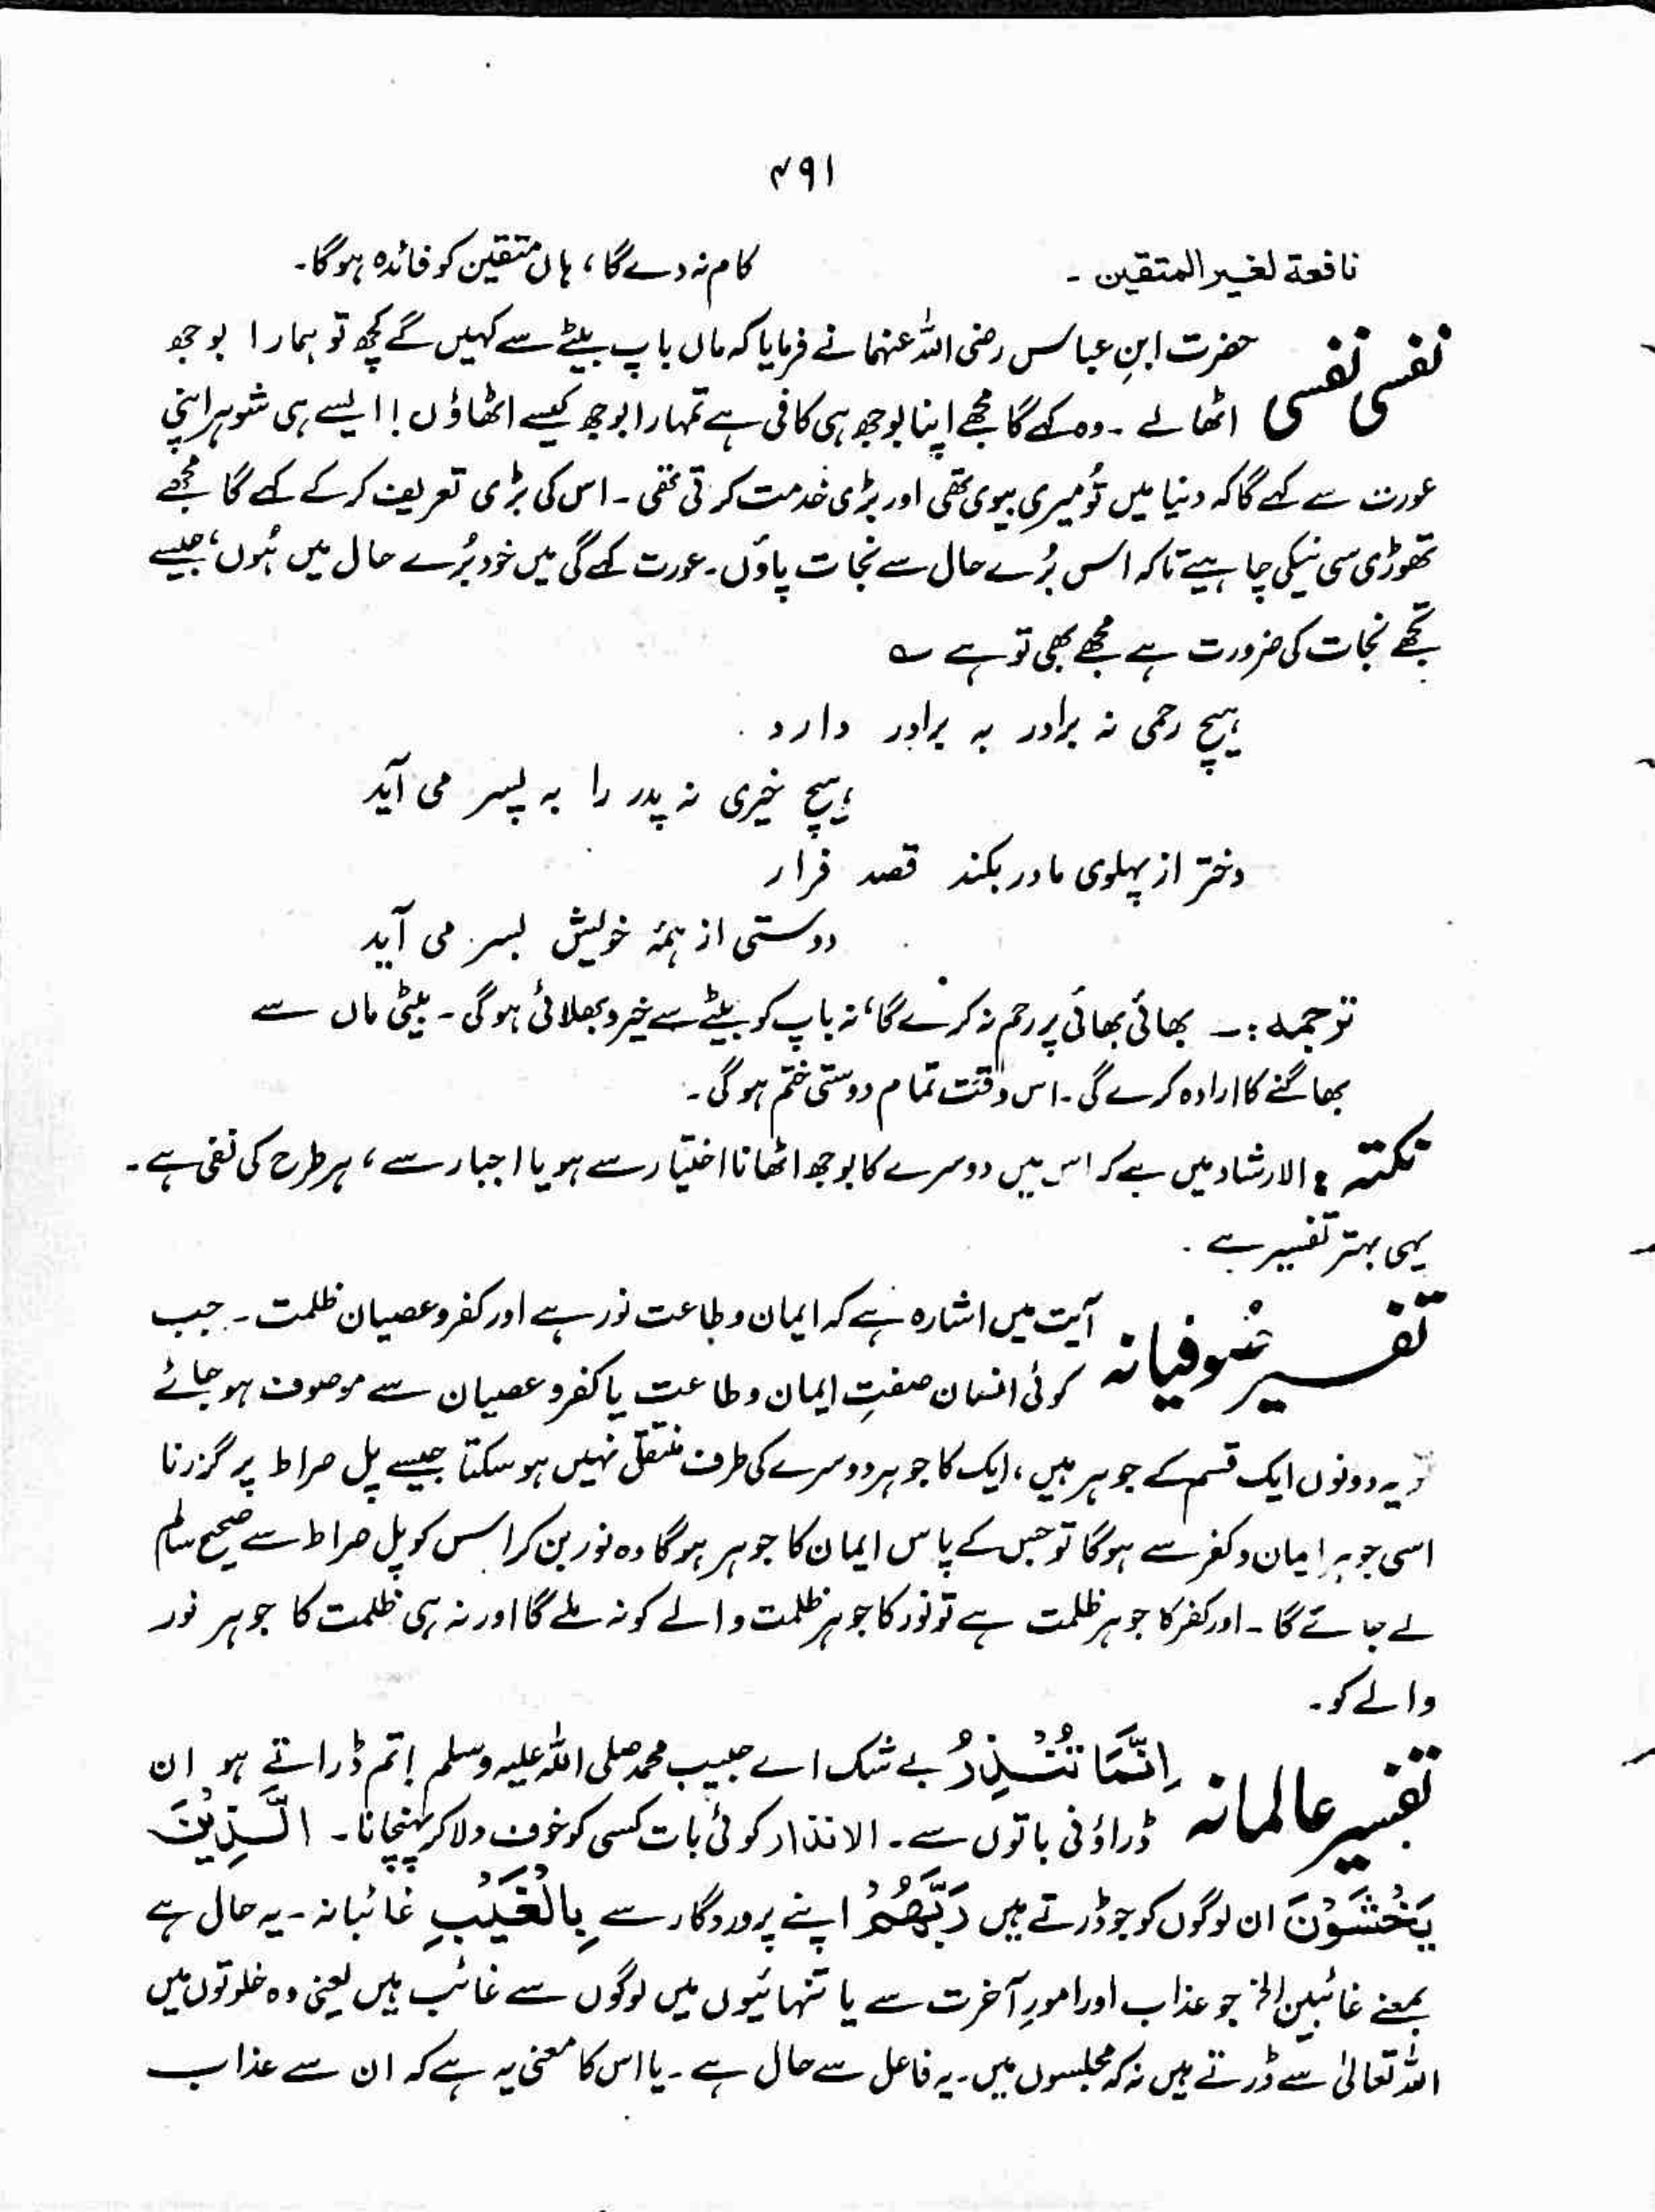 ۴۹۱
نافعة لغير المتقين ۔ کام نہ دے گا، ہاں متقین کو فائدہ ہوگا۔
نفسی نفسی حضرت ابنِ عباس رضی اللہ عنہما نے فرمایا کہ ماں باپ بیٹے سے کہیں گے کچھ تو ہمارا بوجھ
اٹھالے ۔ وہ کہے گا مجھے اپنا بوجھ ہی کافی ہے تمہارا بوجھ کیسے اٹھاؤں ! ایسے ہی شوہر اپنی
عورت سے کہے گا کہ دنیا میں تُو میری بیوی تھی اور بڑی خدمت کرتی تھی ۔ اس کی بڑی تعریف کر کے کہے گا مجھے
تھوڑی سی نیکی چاہیے تاکہ اس بُرے حال سے نجات پاؤں۔ عورت کہے گی میں خود بُرے حال میں ہُوں، جیسے
تجھے نجات کی ضرورت ہے مجھے بھی تو ہے ؎
ہیچ رحمی نہ برادر بہ برادر دارد
ہیچ خیری نہ پدر را بہ پسر می آید
دختر از پہلوی مادر بکند قصد فرار
دوستی از ہمۂ خویش بسر می آید
ترجمہ :۔ بھائی بھائی پر رحم نہ کرے گا، نہ باپ کو بیٹے سے خیر و بھلائی ہوگی ۔ بیٹی ماں سے
بھاگنے کا ارادہ کرے گی ۔ اس وقت تمام دوستی ختم ہوگی ۔
نکتہ : الارشاد میں ہے کہ اس میں دوسرے کا بوجھ اٹھانا اختیار سے ہو یا اجبار سے ، ہر طرح کی نفی ہے ۔
یہی بہتر تفسیر ہے ۔
تفسیر صُوفیانہ آیت میں اشارہ ہے کہ ایمان و طاعت نور ہے اور کفر و عصیان ظلمت ۔ جب
کوئی انسان صفتِ ایمان و طاعت یا کفر و عصیان سے موصوف ہو جائے
تو یہ دونوں ایک قسم کے جوہر ہیں ، ایک کا جوہر دوسرے کی طرف منتقل نہیں ہو سکتا جیسے پل صراط پر گزرنا
اسی جوہر ایمان و کفر سے ہوگا تو جس کے پاس ایمان کا جوہر ہوگا وہ نور بن کر اس کو پل صراط سے صحیح سالم
لے جائے گا ۔ اور کفر کا جوہر ظلمت ہے تو نور کا جوہر ظلمت والے کو نہ ملے گا اور نہ ہی ظلمت کا جوہر نور
والے کو ۔
تفسیر عالمانہ اِنَّمَا تُنْذِرُ بے شک اے حبیب محمد صلی اللہ علیہ وسلم ! تم ڈراتے ہو ان
ڈراؤنی باتوں سے ۔ الانذار کوئی بات کسی کو خوف دلا کر پہنچانا ۔ الَّذِيْنَ
يَخْشَوْنَ ان لوگوں کو جو ڈرتے ہیں رَبَّهُمْ اپنے پروردگار سے بِالْغَيْبِ غائبانہ ۔ یہ حال ہے
بمعنے غائبین الخ جو عذاب اور امورِ آخرت سے یا تنہائیوں میں لوگوں سے غائب ہیں یعنی وہ خلوتوں میں
اللہ تعالیٰ سے ڈرتے ہیں نہ کہ مجلسوں میں ۔ یہ فاعل سے حال ہے ۔ یا اس کا معنی یہ ہے کہ ان سے عذاب